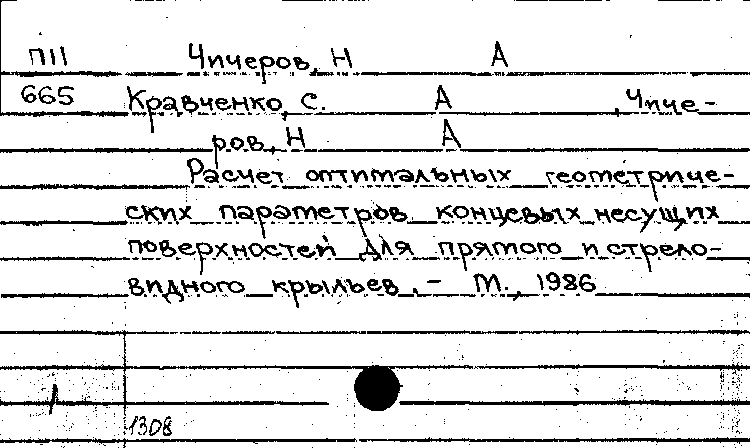 П11 Чичеров, Н А
665 Кравченко, С. А , Чиче-
ров, Н А
Расчет оптимальных геометриче-
ских параметров концевых несущих
поверхностей для прямого и стрело-
видного крыльев. - М., 1986
1308